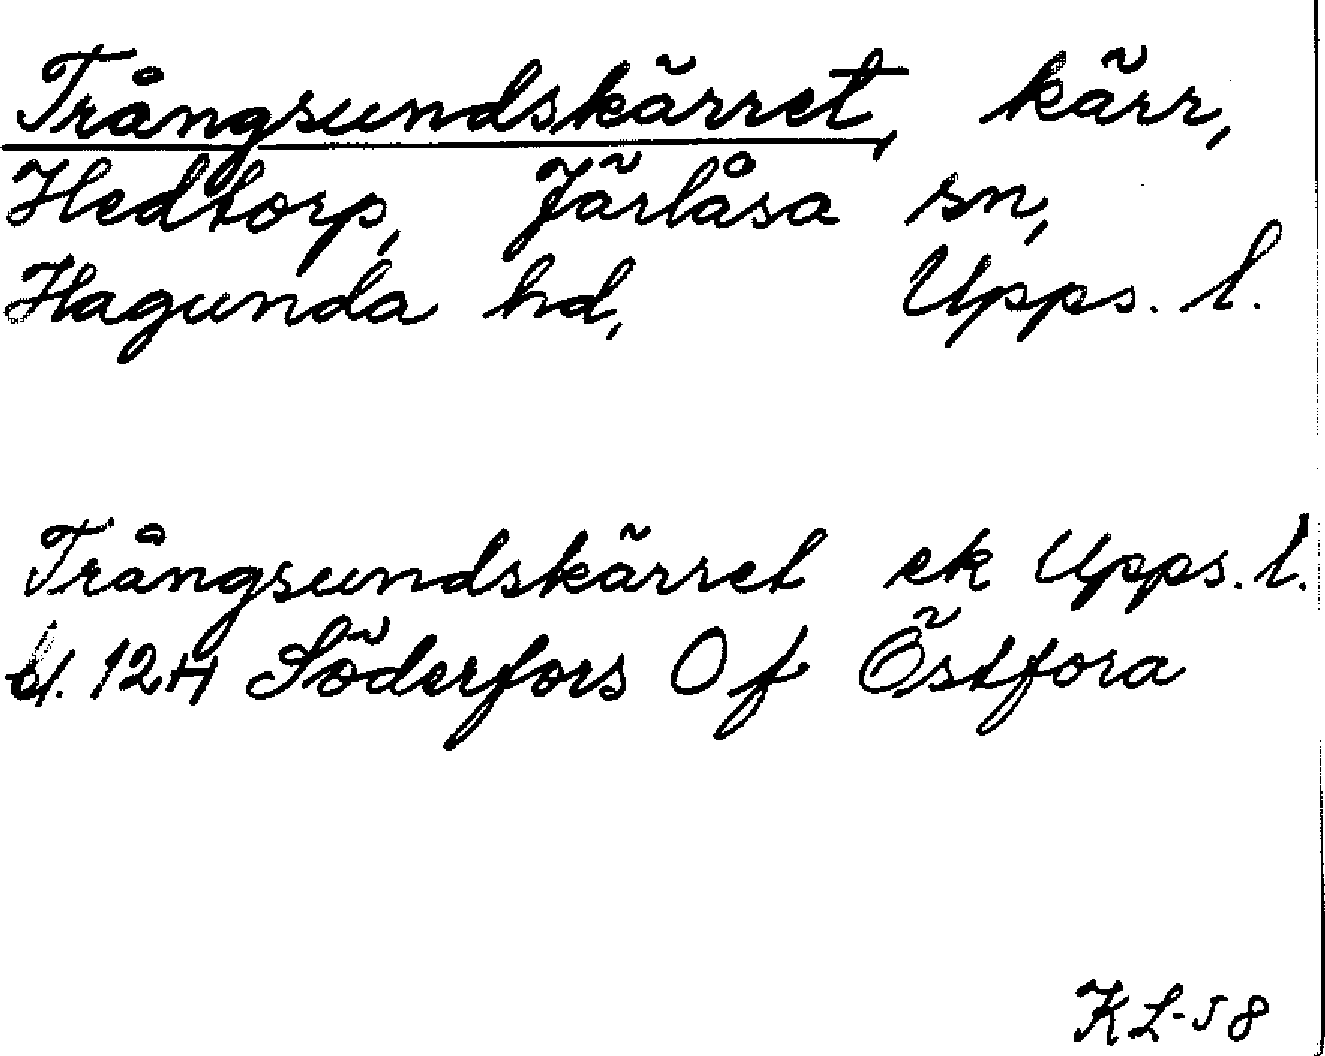 Trångsundskärret, kärr,
Hedtorp, Järlåsa sn,
Hagunda hd, Upps. l.
Trångsundskärret ek Upps. l.
bl. 12H Söderfors Of Östfora
KL-58